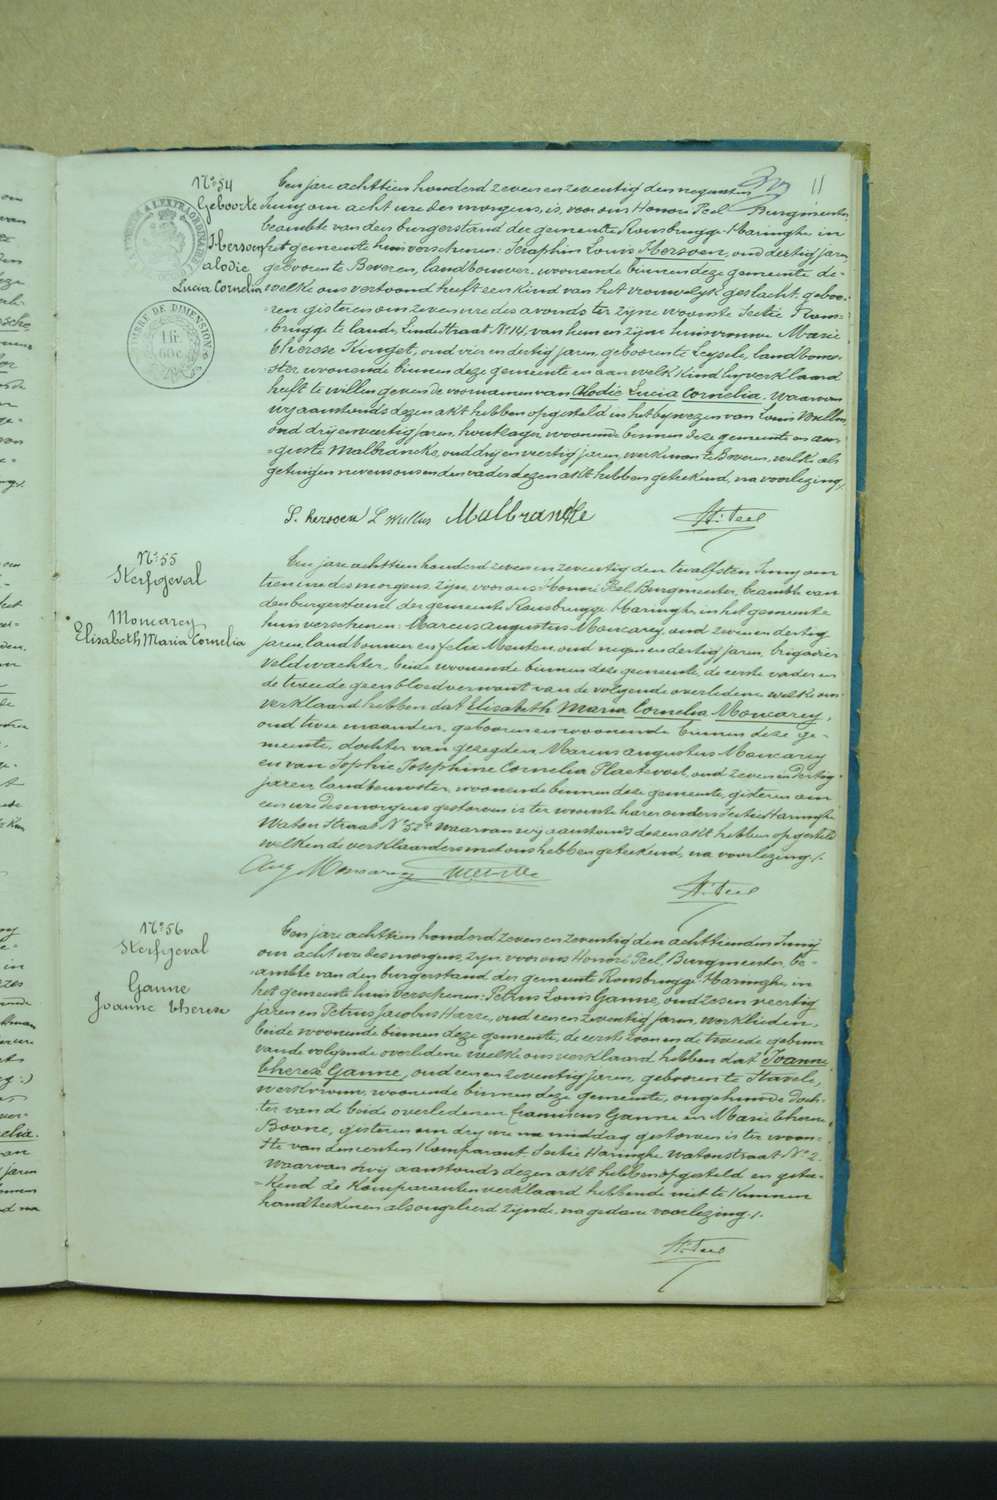 11
Nº 54
Geboorte
Hersoen
alodie
Lucia Cornelia
TIMBRE DE DIMENSION
1 fr.
60 c.
Een jare achttien honderd zeven en zeventig den negensten
Juny om acht ure des morgens, is, voor ons Honoré Peel Burgmeester,
beambte van den burgerstand der gemeente Rousbrugge-Haringhe in
het gemeente huis verschenen: Seraphin Louis Hersoen, oud dertig jaren,
geboren te Beveren, landbouwer, wonende binnen deze gemeente de-
welke ons vertoond heeft een kind van het vrouwelyk geslacht, geboo-
ren gisteren om zeven ure des avonds ter zyne woonste Sectie Rous-
brugge te lande, Linde Straat Nº 14, van hem en zyne huisvrouw Marie
Therese Kinget, oud vier en dertig jaren, geboren te Leysele, landbouw-
ster, wonende binnen deze gemeente en aan welk kind hy verklaard
heeft te willen geven de voornamen van Alodie Lucia Cornelia. Waarvan
wy aanstonds dezen akt hebben opgesteld in het bywezen van Louis Wullus,
oud dry en veertig jaren, houtzager, wonende binnen deze gemeente en au-
guste Malbrancke, oud dry en veertig jaren, werkman te Beveren, welke als
getuigen nevens ons en den vader dezen akt hebben geteekend, na voorlezing ./.
S. hersoen L Wullus Malbrancke H. Peel
Nº 55
Sterfgeval
Moncarey
Elisabeth Maria Cornelia
Een jare achttien honderd zeven en zeventig den twalfsten Juny om
tien ure des morgens, zyn, voor ons Honoré Peel, Burgmeester, beambte van
den burgerstand der gemeente Rousbrugge Haringhe in het gemeente
huis verschenen: Marcus augustus Moncarey, oud zeven en dertig
jaren, landbouwer en felix Meuten, oud negen en dertig jaren, brigadier
veldwachter, beide wonende binnen deze gemeente, de eerste vader en
de tweede geen bloedverwant van de volgende overledene welke ons
verklaard hebben dat Elisabeth Maria Cornelia Moncarey,
oud twee maanden, geboren en wonende binnen deze ge-
meente, dochter van gezegden Marcus augustus Moncarey
en van Sophie Josephine Cornelia Plaetevoet, oud zeven en dertig
jaren, landbouwster, wonende binnen deze gemeente, gisteren om
een ure des morgens gestorven is ter woonste harer ouders Sectie Haringhe
Waton Straat Nº 52. Waarvan wy aanstonds dezen akt hebben opgesteld
welken de verklaarders met ons hebben geteekend, na voorlezing ./.
Aug Moncarey H. Peel
Nº 56
Sterfgeval
Ganne
Joanne therese
Een jare achttien honderd zeven en zeventig den achttienden Juny
om acht ure des morgens, zyn, voor ons Honoré Peel, Burgmeester, be-
ambte van den burgerstand der gemeente Rousbrugge Haringhe, in
het gemeente huis verschenen: Petrus Louis Ganne, oud zes en veertig
jaren en Petrus Jacobus Harre, oud een en zeventig jaren, werklieden,
beide wonende binnen deze gemeente, de eerste zoon en de tweede gebuur
van de volgende overledene welke ons verklaard hebben dat Joanne
therese Ganne, oud een en zeventig jaren, geboren te Stavele,
werkvrouw, wonende binnen deze gemeente, ongehuwde doch-
ter van de beide overledenen franciscus Ganne en Marie therese
Boone, gisteren om dry ure na middag gestorven is ter woon-
ste van den eersten Komparant Sectie Haringhe Watonstraat Nº 2.
Waarvan wy aanstonds dezen akt hebben opgesteld en getee-
kend de Komparanten verklaard hebbende niet te kunnen
handteekenen als ongeleerd zynde, na gedane voorlezing ./.
H. Peel